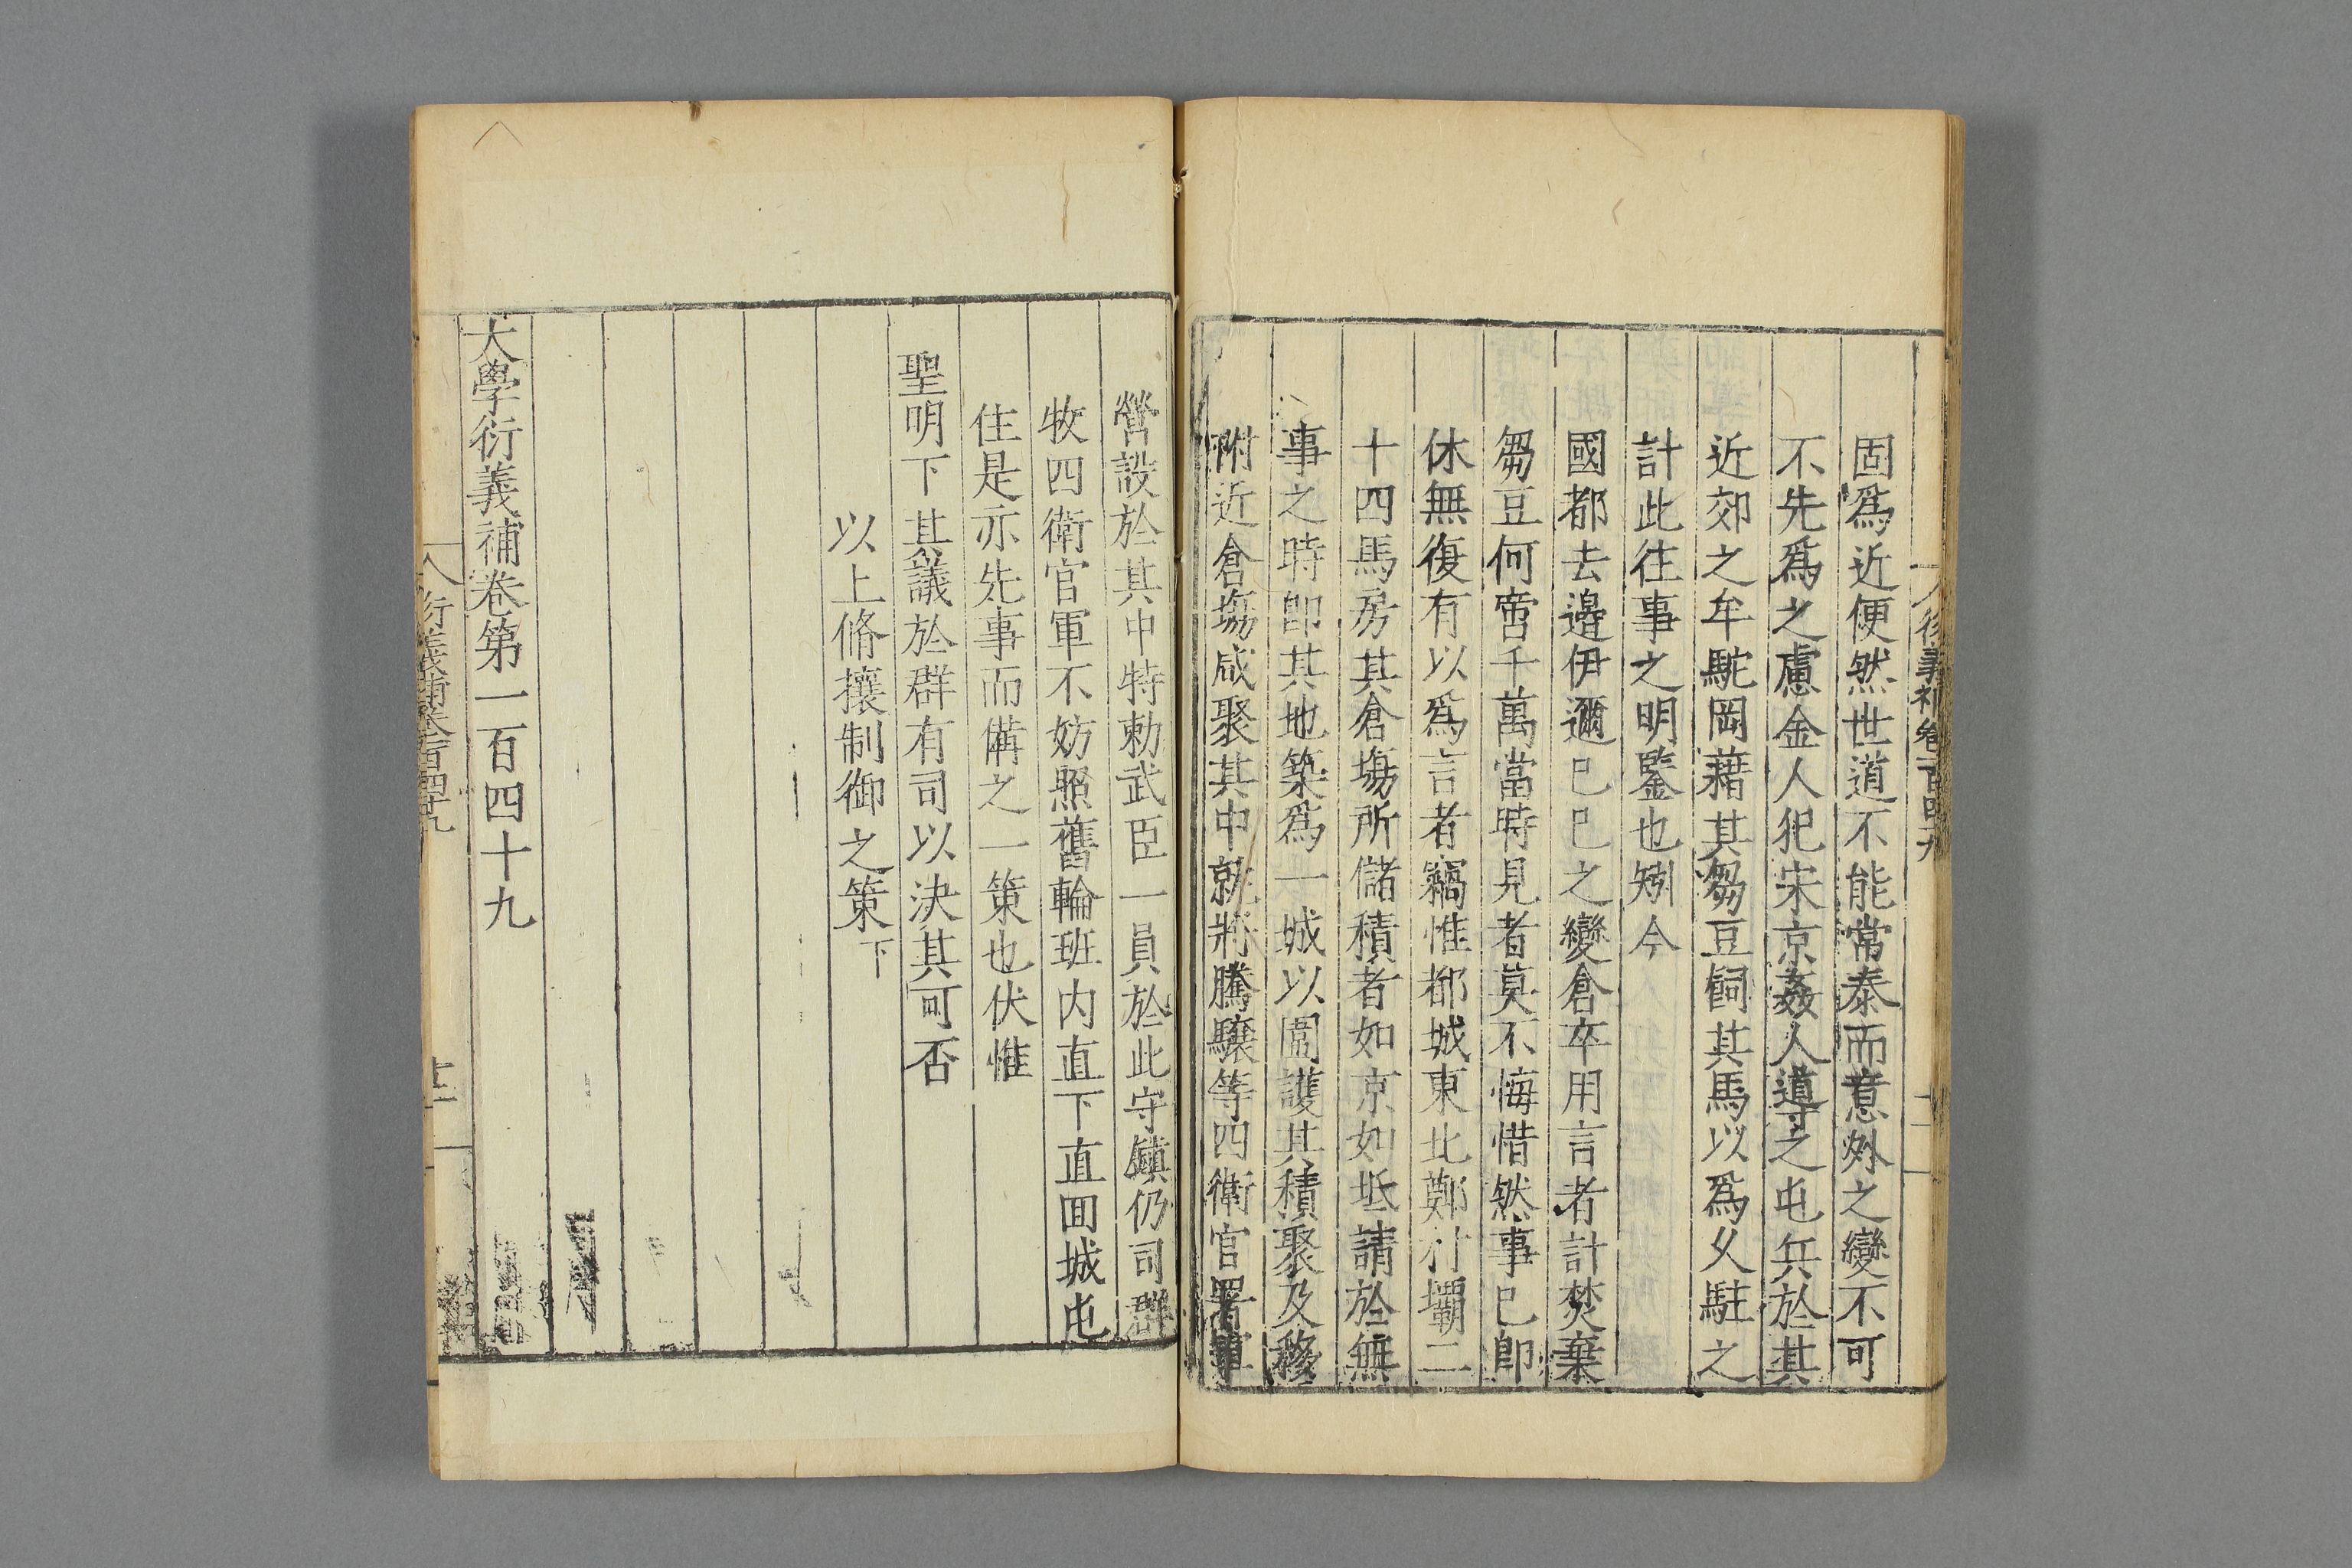 固爲近便然世道不能常泰而意外之變不可
不先爲之慮金人犯宋京姦人導之屯兵於其
近郊之牟駝岡藉其芻豆飼其馬以爲久駐之
計此徃事之明鑒也矧今
國都去邊伊邇己巳之變倉卒用言者計焚棄
芻豆何啻千萬當時見者莫不悔惜然事已即
休無復有以爲言者竊惟都城東北鄭村壩二
十四馬房其倉塲所儲積者如京如坻請於無
事之時即其地築爲一城以圍護其積聚及移
附近倉塲咸聚其中就將騰驤等四衛官署軍
營設於其中特勅武臣一員於此守鎮仍司群
牧四衛官軍不妨照舊輪班内直下直囬城屯
住是亦先事而備之一策也伏惟
聖明下其議於群有司以決其可否
以上脩攘制御之策下
大學衍義補卷第一百四十九
衍義補卷一百四十九